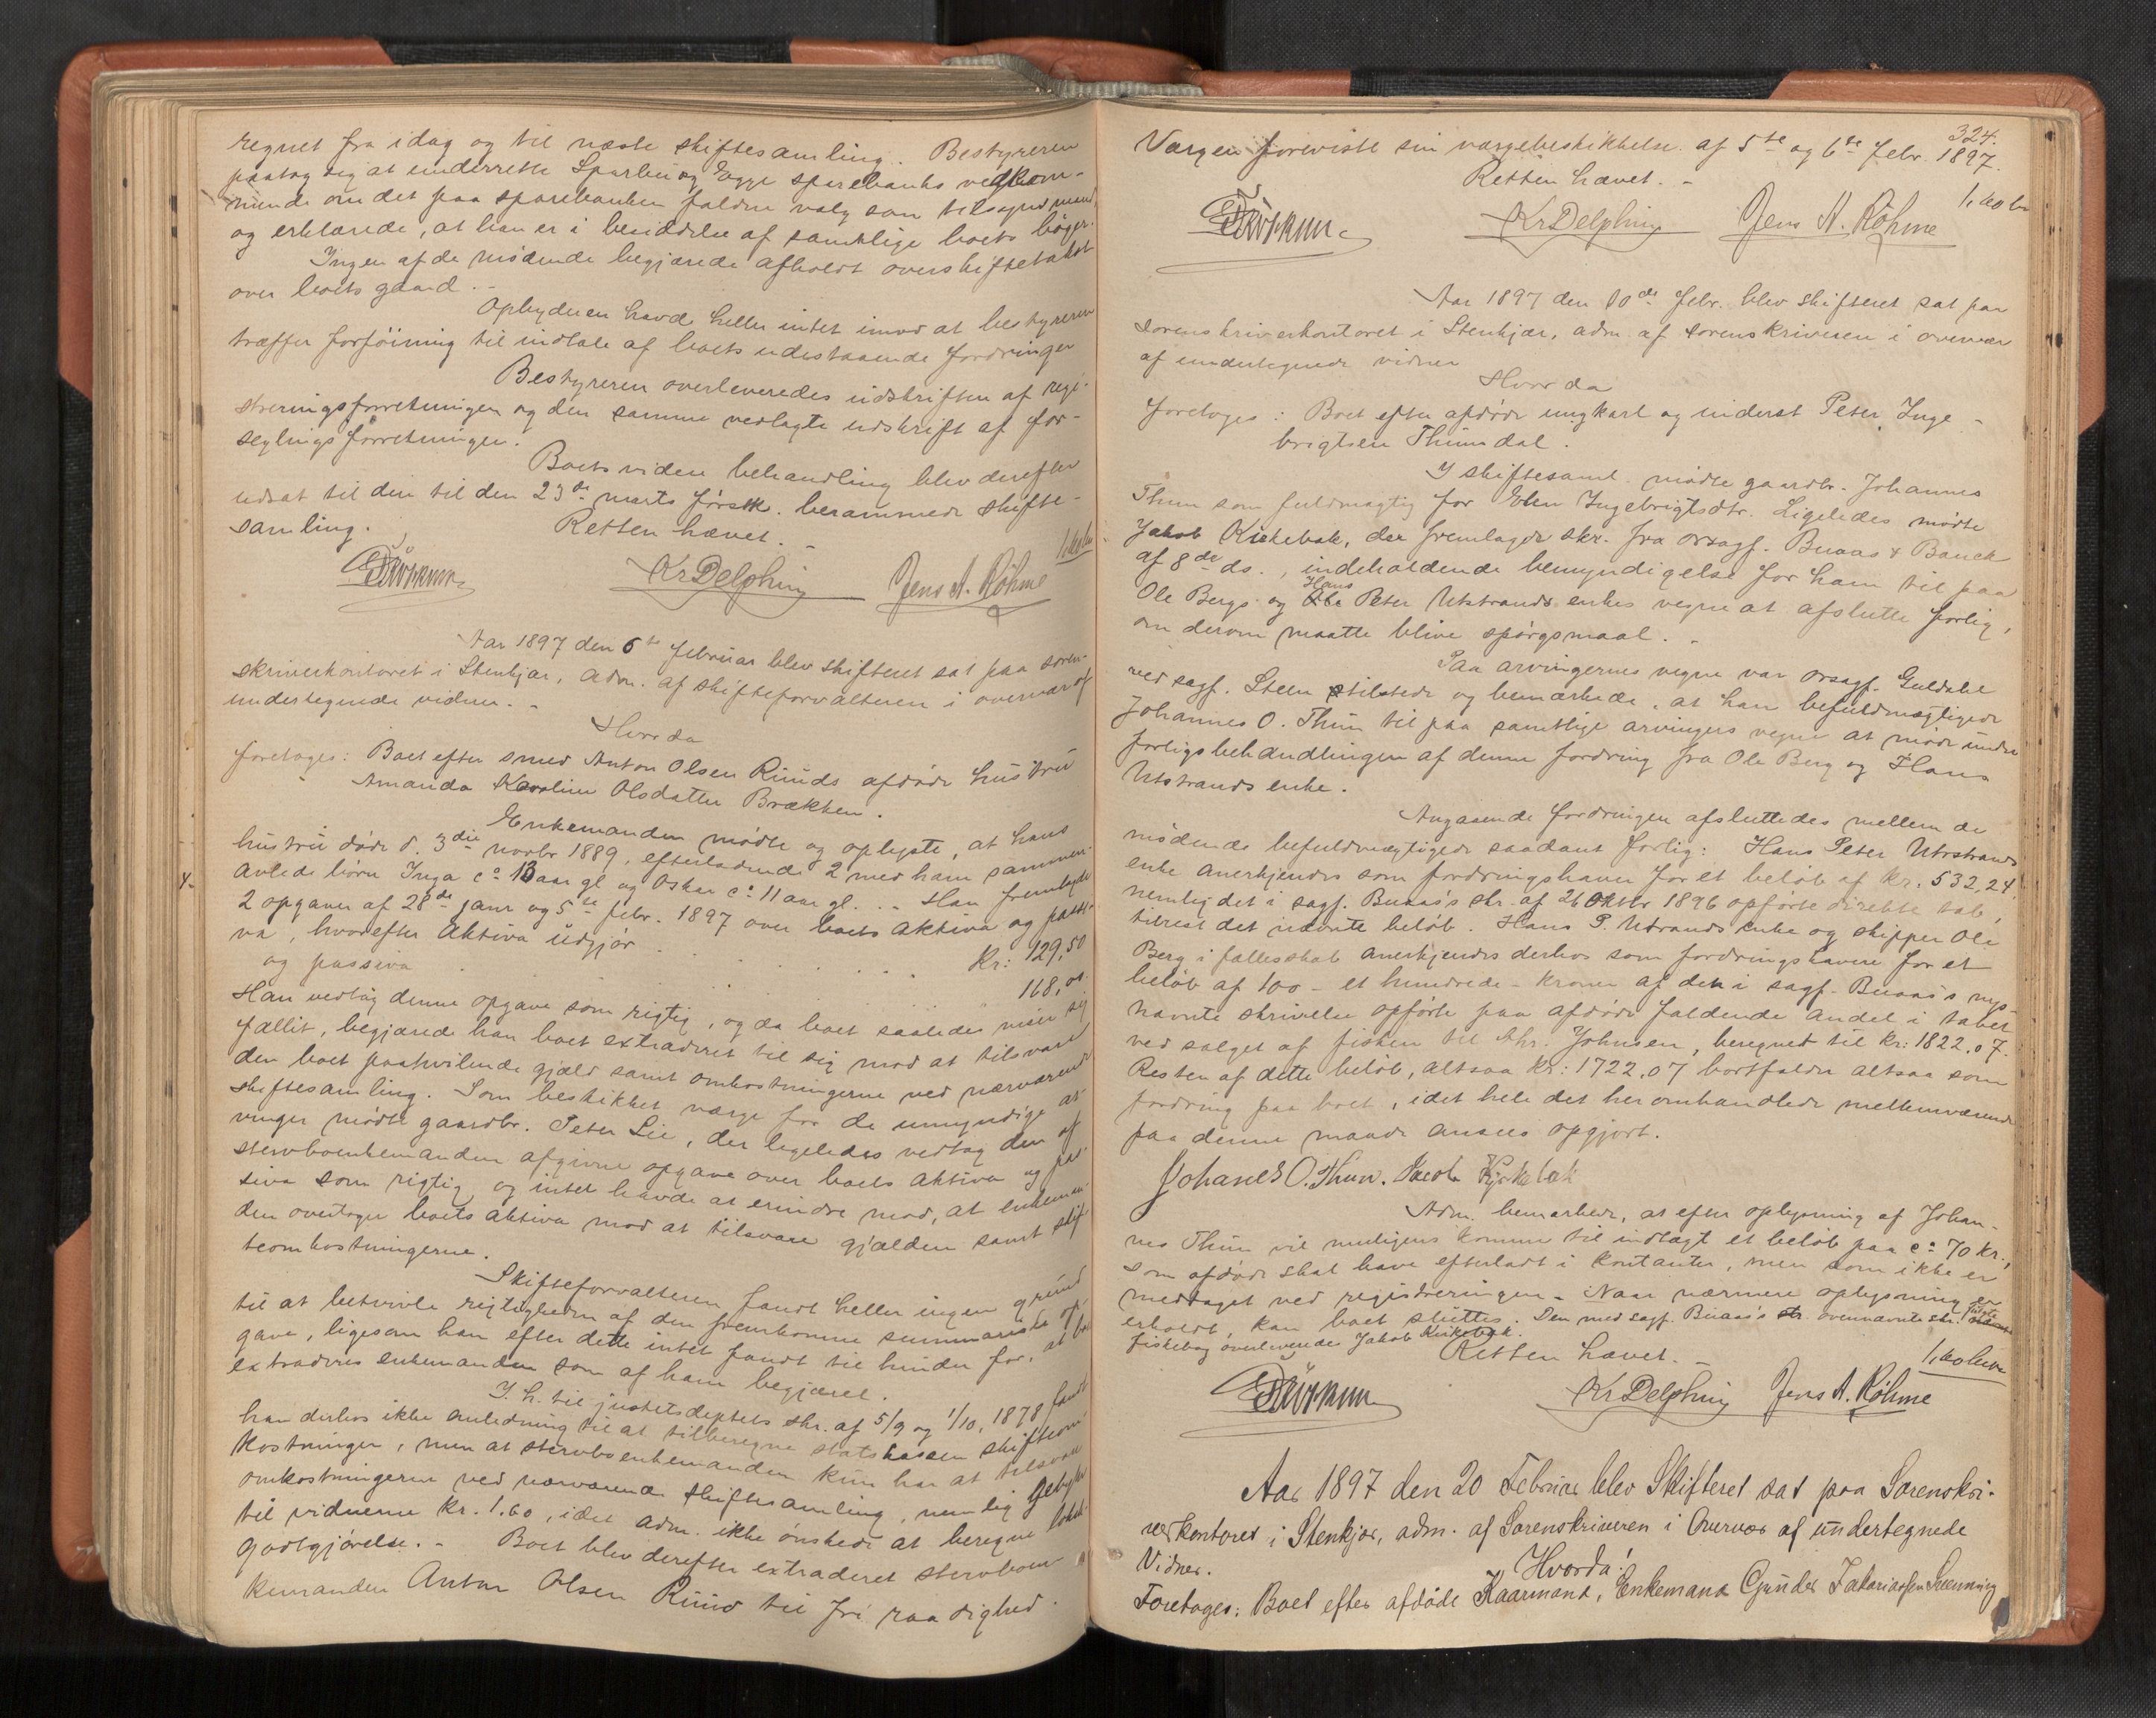 regnet fra idag og til næste skiftesamling. Bestyreren
paatog sig at underrette Sparbu og Egge sparebanks vedkom-
mende om det paa sparebanken faldne valg som tilsynsmænd
og erklærede, at han er i besiddelse af samtlige boets bøger.
Ingen af de mødende begjærede afholdt overskiftetakst
over boets gaard. -
Opbyderen havde heller intet imod at bestyreren
træffer forføining til indtale af boets udestaaende fordringer
Bestyreren overleveredes udskriften af regi-
streringsforretningen og den samme vedlagte udskrift af for-
seglingsforretningen.
Boets videre behandling blev derefter
udsat til den til den 23de marts førstk. berammede skifte-
samling.
Retten hævet. -
Kr Delphin Jens A. Röhme
Aar 1897 den 6te februar blev skifteret sat paa soren-
skriverkontoret i Stenkjær, adm. af skifteforvalteren i overvær af
undertegnede vidner. -
Hvorda
foretoges: Boet efter smed Anton Olsen Ruuds afdøde hustru
Amanda Karoline Olsdatter Brækken.
Enkemanden mødte og oplyste, at hans
hustru døde d. 3die novbr 1889, efterladende 2 med ham sammen-
avlede børn Inga ca 13 aar gl og Oskar ca 11 aar gl. .. Han fremlagde
4.
2 opgaver af 28de janr og 5te febr. 1897 over boets aktiva og passi-
va, hvorefter Aktiva udgjør . . . . Kr: 129,50
og passiva . . . . " 168,00
Han vedtog denne opgave som rigtig, og da boet saaledes viser sig
fallit, begjærede han boet extraderet til sig mod at tilsvare
den boet paahvilende gjæld samt omkostningerne ved nærværende
skiftesamling. Som beskikket værge for de umyndige ar-
vinger mødte gaardbr. Peter Lie, der ligeledes vedtog den af
stervboenkemanden afgivne opgave over boets aktiva og pas-
siva som rigtig og intet havde at erindre mod, at enkeman-
den overtager boets aktiva mod at tilsvare gjælden samt skif-
teomkostningerne.
Skifteforvalteren fandt heller ingen grund
til at betvivle rigtigheden af den fremkomne summariske op-
gave, ligesom han efter dette intet fandt til hinder for, at bo
extraderes enkemanden som af ham begjæret.
I h. til justitsdeptets skr. af 5/9 og 1/10, 1878 fandt
han derhos ikke anledning til at tilberegne statskassen skifteom-
kostninger, men at stervboenkemanden kun har at tilsvare
omkostningerne ved nærværende skiftesamling, nemlig gebyhr
til vidnerne kr. 1.60, idet adm. ikke ønskede at beregne lokal-
godtgjørelse. - Boet blev derefter extraderet stervboen-
kemanden Anton Olsen Ruud til fri raadighed.
324.
Værgen foreviste sin værgebeskikkelse af 5te og 6te febr. 1897.
Retten hævet. -
Kr Delphin Jens A. Röhme
Aar 1897 den 10de febr. blev skifteret sat paa
sorenskriverkontoret i Stenkjær, adm. af sorenskriveren i overvær
af undertegnede vidner
Hvorda
foretoges: Boet efter afdøde ungkarl og inderst Peter Inge-
brigtsen Thunsdal.
I skiftesaml. mødte gaardbr. Johannes
Thun som fuldmægtig for Elen Ingebrigtsdtr. Ligeledes mødte
Jakob Kirkebak, der fremlagde skr. fra orsagf. Buaas & Bauck
af 8de ds., indeholdende bemyndigelse for ham til paa
Ole Bergs og Hans Peter Utstrands enkes vegne at afslutte forlig,
om derom maatte blive spørgsmaal. -
Paa arvingernes vegne var orsagf. Guldahl
ved sagf. Steen tilstede og bemærkede, at han befuldmægtigede
Johannes O. Thun til paa samtlige arvingers vegne at møde under
forligsbehandlingen af denne fordring fra Ole Berg og Hans
Utstrands enke.
Angaaende fordringen afsluttedes mellem de
mødende befuldmægtigede saadant forlig: Hans Peter Utstrands
enke anerkjendes som fordringshaver for et beløb af kr. 532,24,
nemlig det i sagf. Buaas's skr. af 26 Oktbr 1896 opførte direkte tab,
tilvist det nævnte beløb. Hans P. Utstrands enke og skipper Ole
Berg i fællesskab anerkjendes derhos som fordringshavere for et
beløb af 100 - et hundrede - kroner af den i sagf. Buaas's nys-
nævnte skrivelse opførte paa afdøde faldende andel i tabet
ved salget af fisken til Chr. Johnsen, beregnet til kr: 1822.07.
Resten af dette beløb, altsaa kr: 1722.07 bortfalder altsaa som
fordring paa boet, idet hele det heromhandlede mellemværende
paa denne maade ansees opgjort.
Johanes O. Thun. Jacob Kjrkebak
Adm. bemærkede, at efter oplysning af Johan-
nes Thun vil muligens komme til indtægt et beløb paa ca 70 kr.,
som afdøde skal have efterladt i kontanter, men som ikke er
medtaget ved registreringen. - Naar nærmere oplysning er
erholdt, kan boet sluttes. Den med sagf. Buaas's ovennævnte skr. fulgte
fiskebog overlevertes Jakob Kirkebak.
Retten hævet. -
Kr Delphin Jens A. Röhme
Aar 1897 den 20 Februar blev Skifteret sat paa Sorenskri-
verkontoret i Stenkjær, adm. af Sorenskriveren i Overvær af undertegnede
Vidner.
Hvorda!
Foretoges: Boet efter afdøde Kaarmand, Enkemand Gunder Zakariassen Svenning